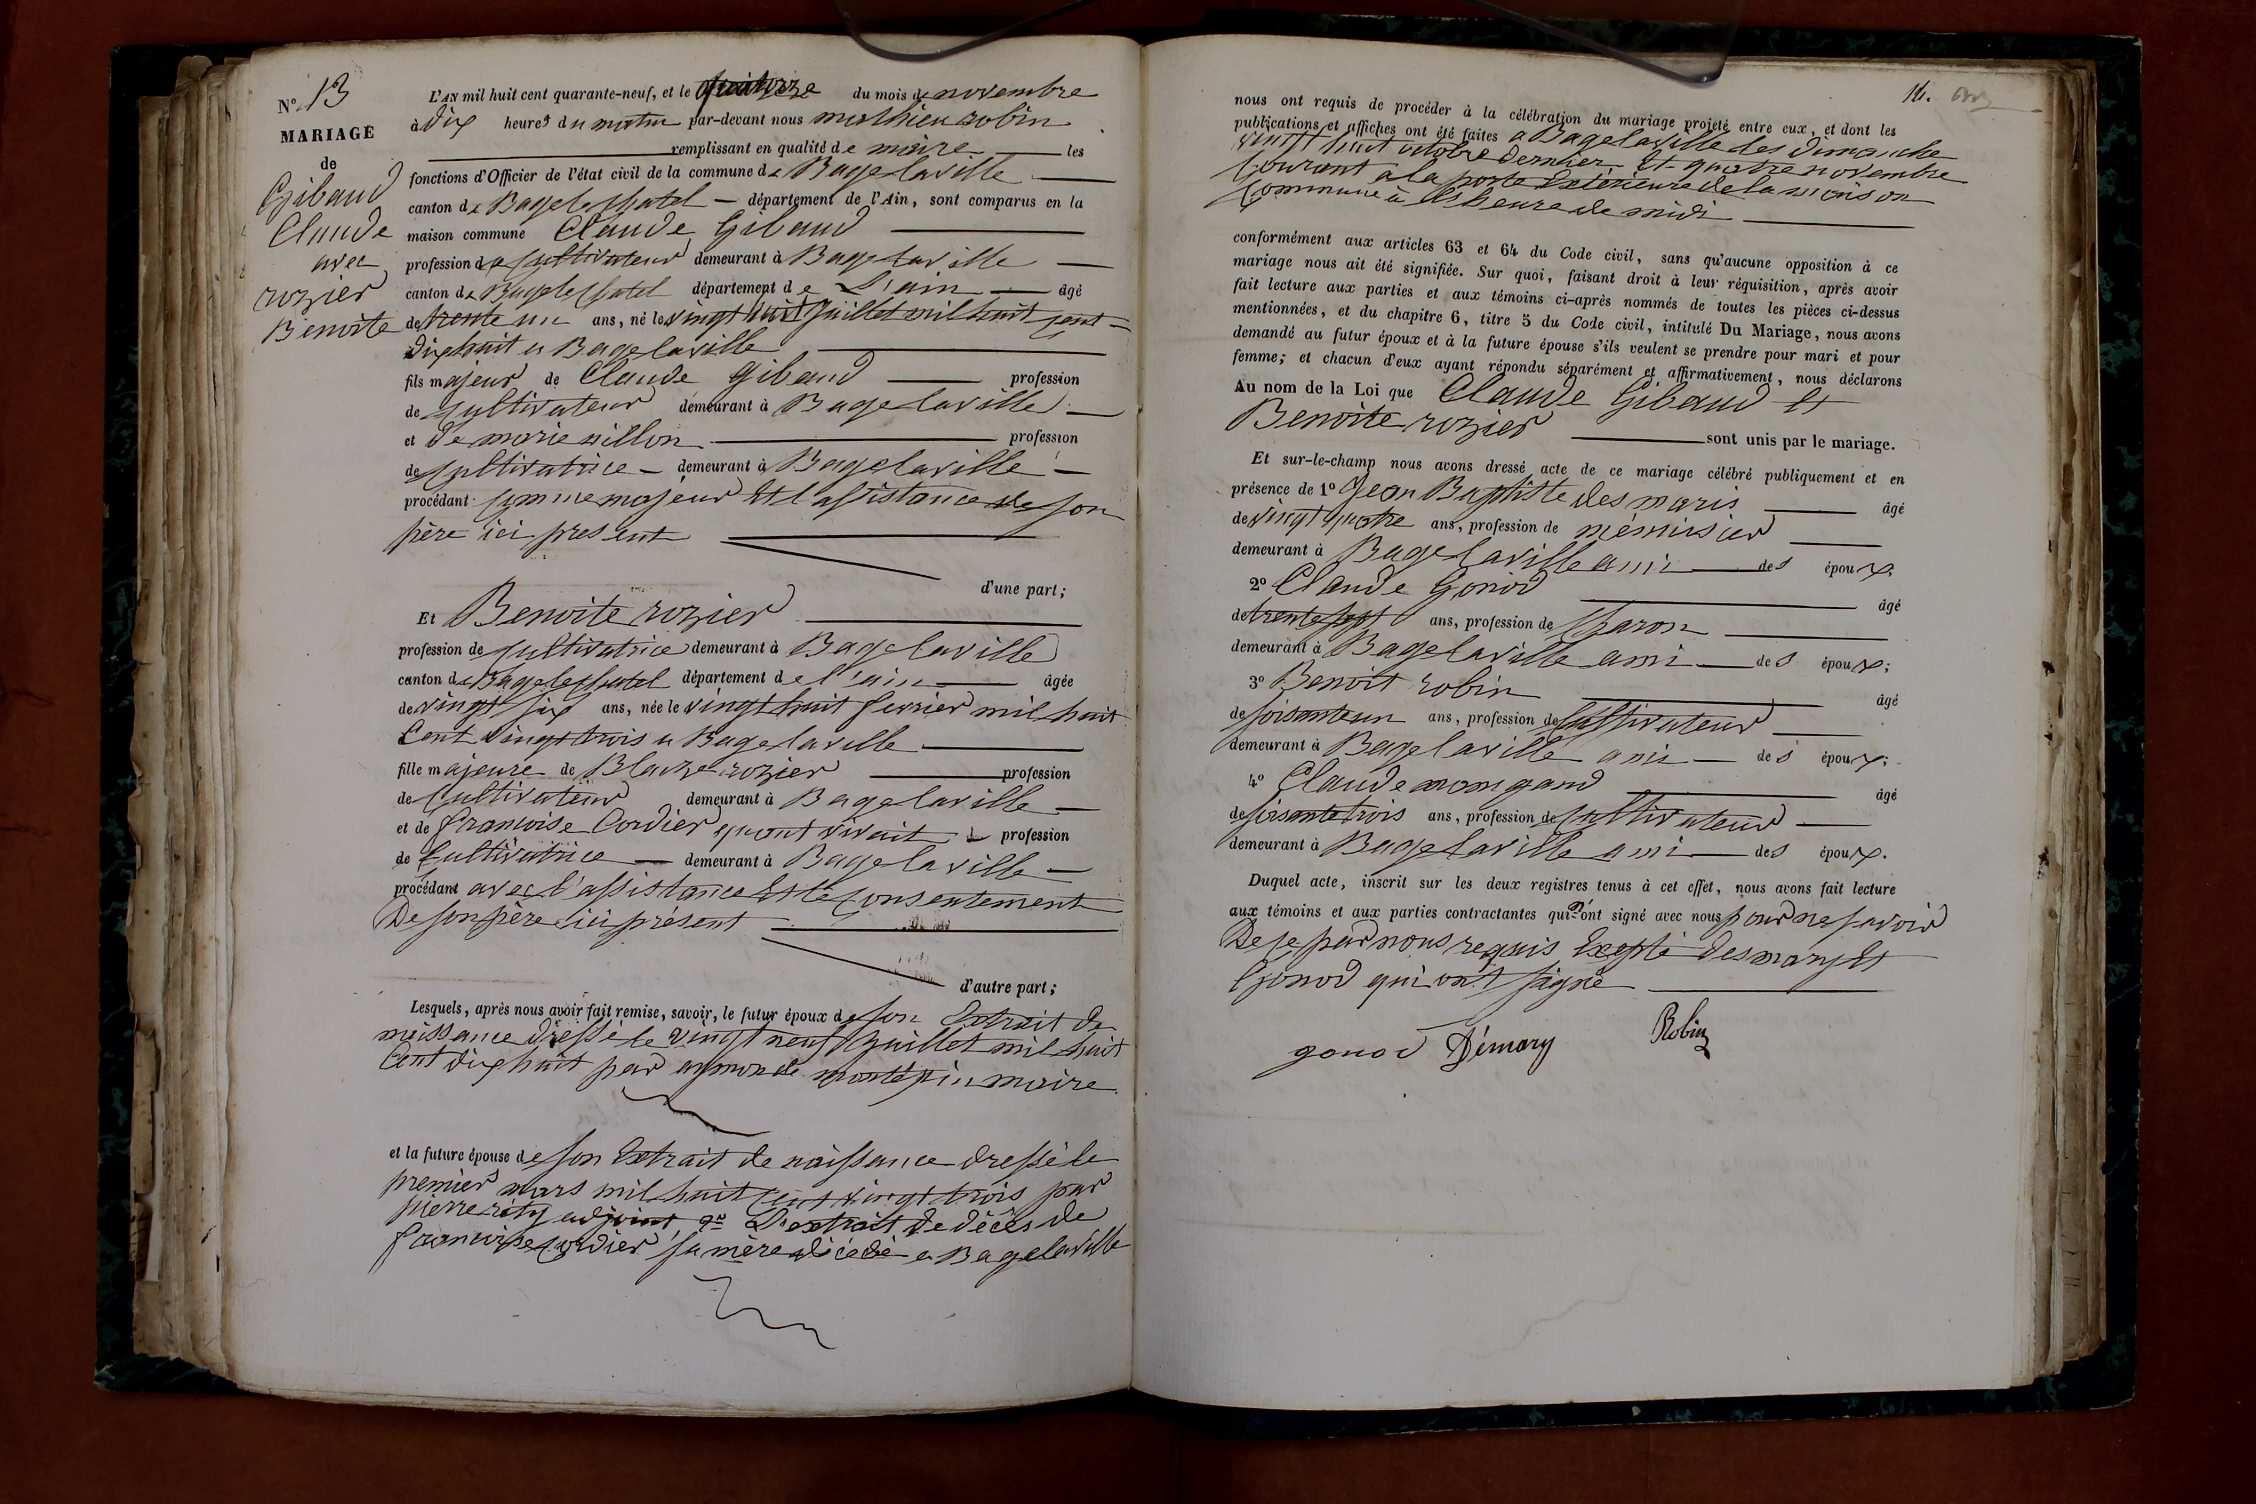 N° 13
MARIAGE
de
Gibaud
Claude
avec
rozier
Benoite
L'AN mil huit cent quarante-neuf, et le du mois de novembre
à dix heures du matin par-devant nous mathieu robin
remplissant en qualité de maire les
fonctions d'Officier de l'état civil de la commune de Bagelaville
canton de Bagelechatel département de l'Ain, sont comparus en la
maison commune Claude Gibaud
profession de Cultivateur demeurant à Bagelaville
canton de Bagelechatel département de L'ain âgé
de trente un ans, né le vingt huit Juillet mil huit cent
dix huit a Bagelaville
fils majeur de Claude gibaud profession
de Cultivateur demeurant à Bagelaville
et de marie profession
de Cultivatrice demeurant à Bagelaville
procédant comme majeur Et l'assistance de son
père ici present
d'une part;
Et Benoite rozier
profession de Cultivatrice demeurant à Bagelaville
canton de Bagelechatel département de l'ain âgée
de vingt six ans, née le vingt huit fevrier mil huit
Cent vingt trois a Bagelaville
fille majeure de Blaize rozier profession
de Cultivateur demeurant à Bagelaville
et de francoise Cordier quant vivait profession
de Cultivatrice demeurant à Bagelaville
procédant avec l'assistance Et le consentement
De son père ici present
d'autre part;
Lesquels, après nous avoir fait remise, savoir, le futur époux de son Extrait de
naissance dressé le vingt neuf Juillet mil huit
Cent dix huit par maire
et la future épouse de son Extrait de naissance dressé le
premier mars mil huit Cent vingt trois par
pierre adjoint, L'extrait de décès de
francoise Cordier sa mère décédé a Bagelaville
14.
nous ont requis de procéder à la célébration du mariage projeté entre eux, et dont les
publications et affiches ont été faites a Bagelaville les dimanche
vingt huit octobre dernier Et quatre novembre
Courant a la porte Extérieure de la maison
Commune à l'heure de midi
conformément aux articles 63 et 64 du Code civil, sans qu'aucune opposition à ce
mariage nous ait été signifiée. Sur quoi, faisant droit à leur réquisition, après avoir
fait lecture aux parties et aux témoins ci-après nommés de toutes les pièces ci-dessus
mentionnées, et du chapitre 6, titre 5 du Code civil, intitulé Du Mariage, nous avons
demandé au futur époux et à la future épouse s'ils veulent se prendre pour mari et pour
femme; et chacun d'eux ayant répondu séparément et affirmativement, nous déclarons
Au nom de la Loi que Claude Gibaud Et
Benoite rozier sont unis par le mariage.
Et sur-le-champ nous avons dressé acte de ce mariage célébré publiquement et en
présence de 1° Jean Baptiste des maris âgé
de vingt quatre ans, profession de ménuisier
demeurant à Bagelaville ami des époux
2° Claude Gonod âgé
de trente sept ans, profession de Charon
demeurant à Bagelaville ami des époux;
3° Benoit robin âgé
de soisante un ans, profession de Cultivateur
demeurant à Bagelaville ami des époux;
4° Claude mongaud âgé
de soisante trois ans, profession de Cultivateur
demeurant à Bagelaville ami des époux.
Duquel acte, inscrit sur les deux registres tenus à cet effet, nous avons fait lecture
aux témoins et aux parties contractantes qui n'ont signé avec nous pour ne savoir
De ce par nous requis Excepté desmary Et
Gonod qui ont signé
gonod Démary Robin